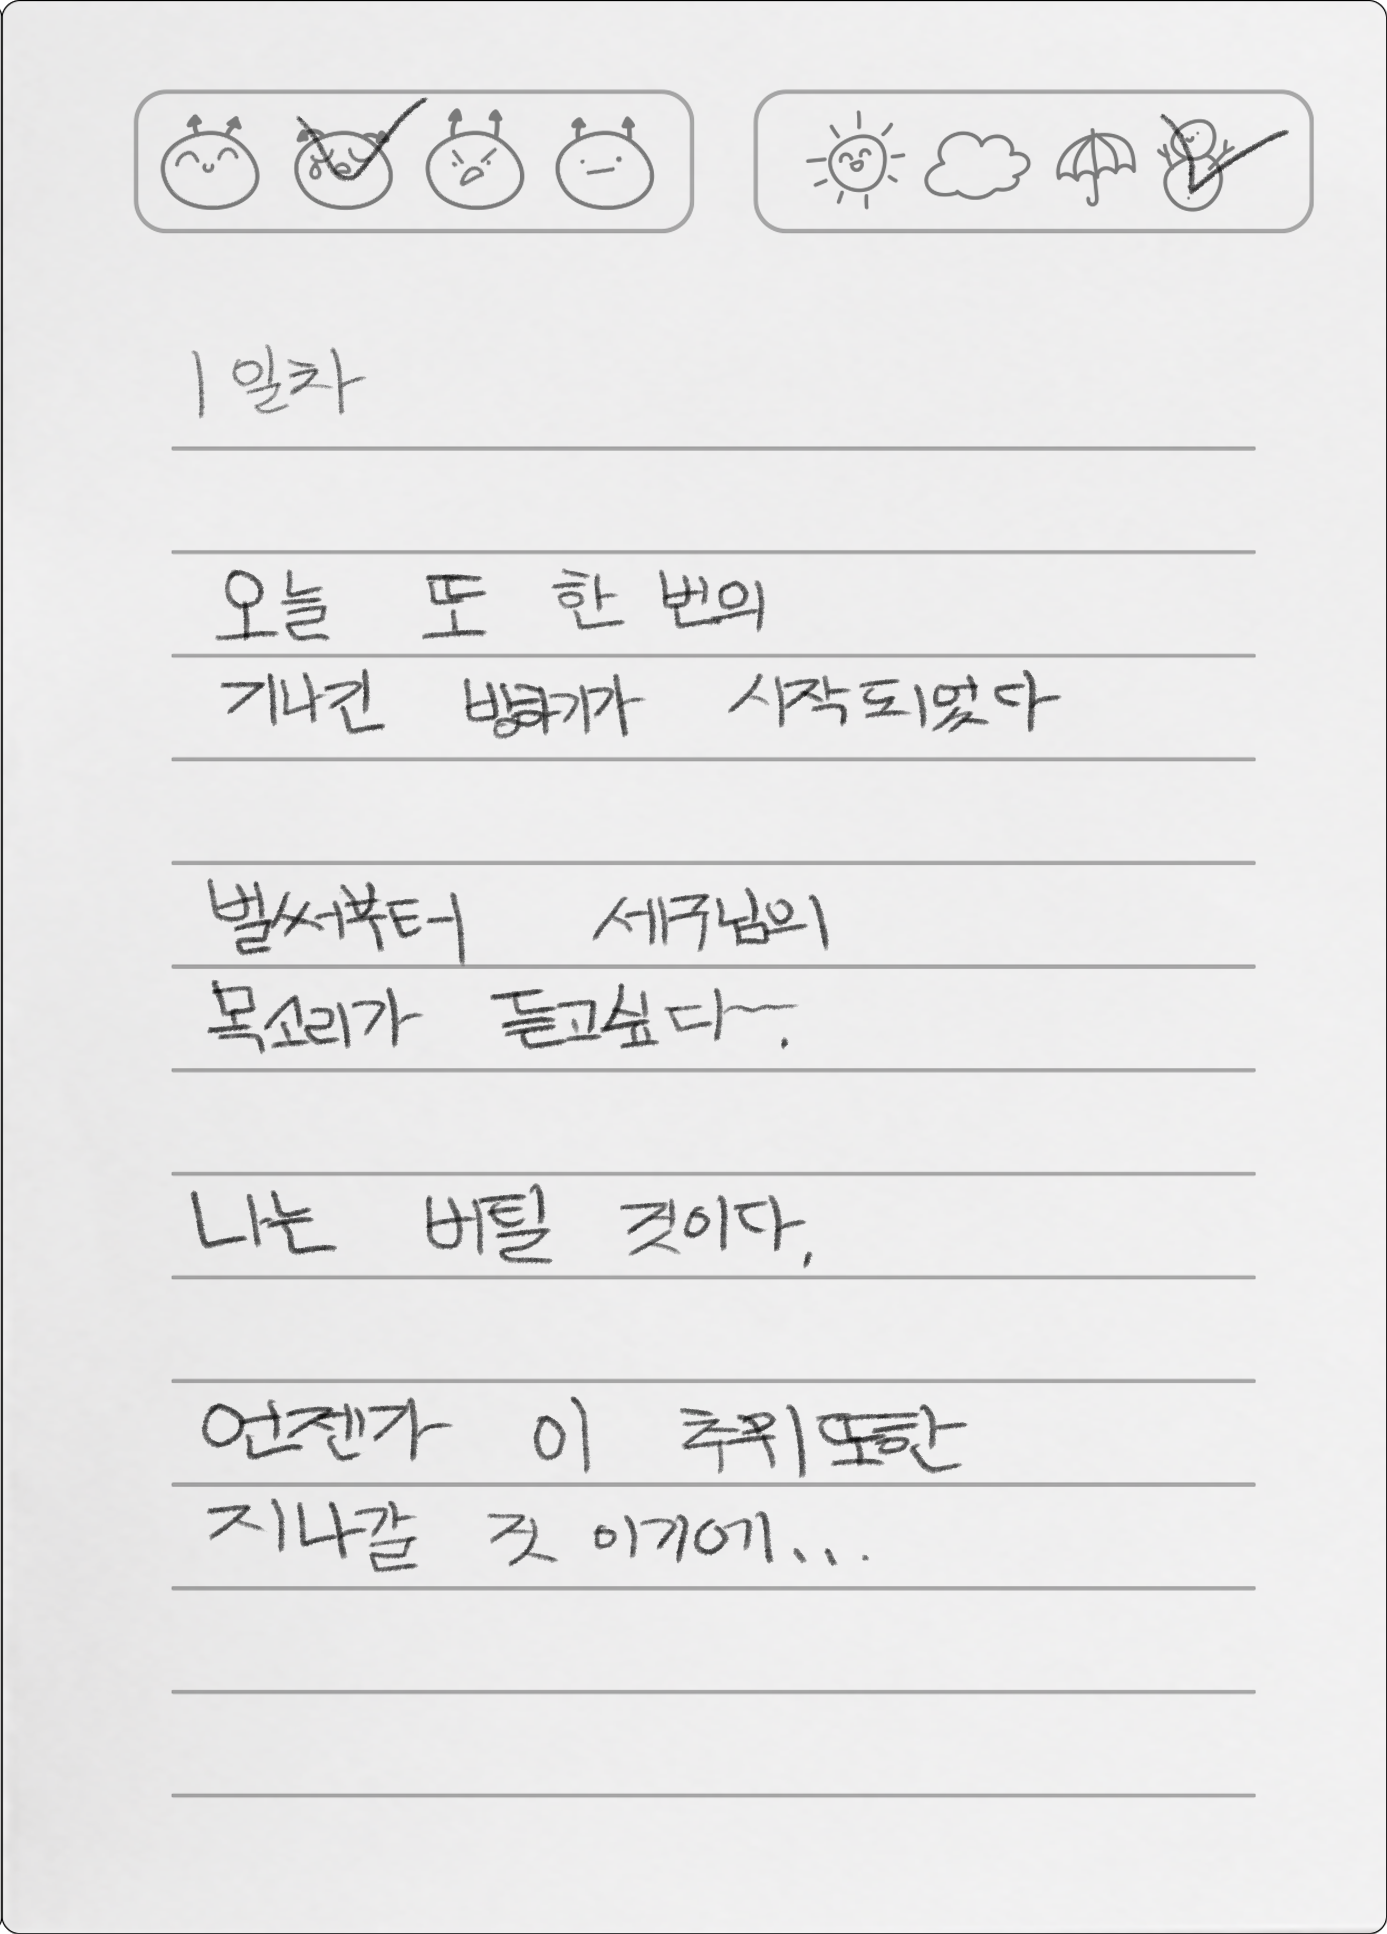 1일차
오늘 또 한 번의
기나긴 방학기가 시작되었다
벌써부터 세구님의
목소리가 듣고싶다~.
나는 버틸 것이다,
언젠가 이 추위또한
지나갈 것 이기에...